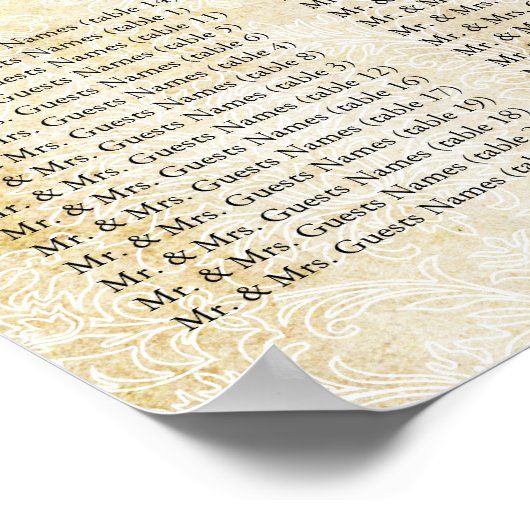 Names (table 14)
Guests Names (table 11)
Guests Names (table 6)
Guests Names (table 8)
Mrs. Guests Names (table 3)
Mrs. Guests Names (table 12)
& Mrs. Guests Names (table 16)
Mr. & Mrs. Guests Names (table 17)
Mr. & Mrs. Guests Names (table 19)
Mr. & Mrs. Guests Names (table 18)
Mr. & Mrs. Guests Names (table
Mr. & Mrs. Guests Names (ta
Mr. & 
Mr. & 
Mr. & 
Mr.